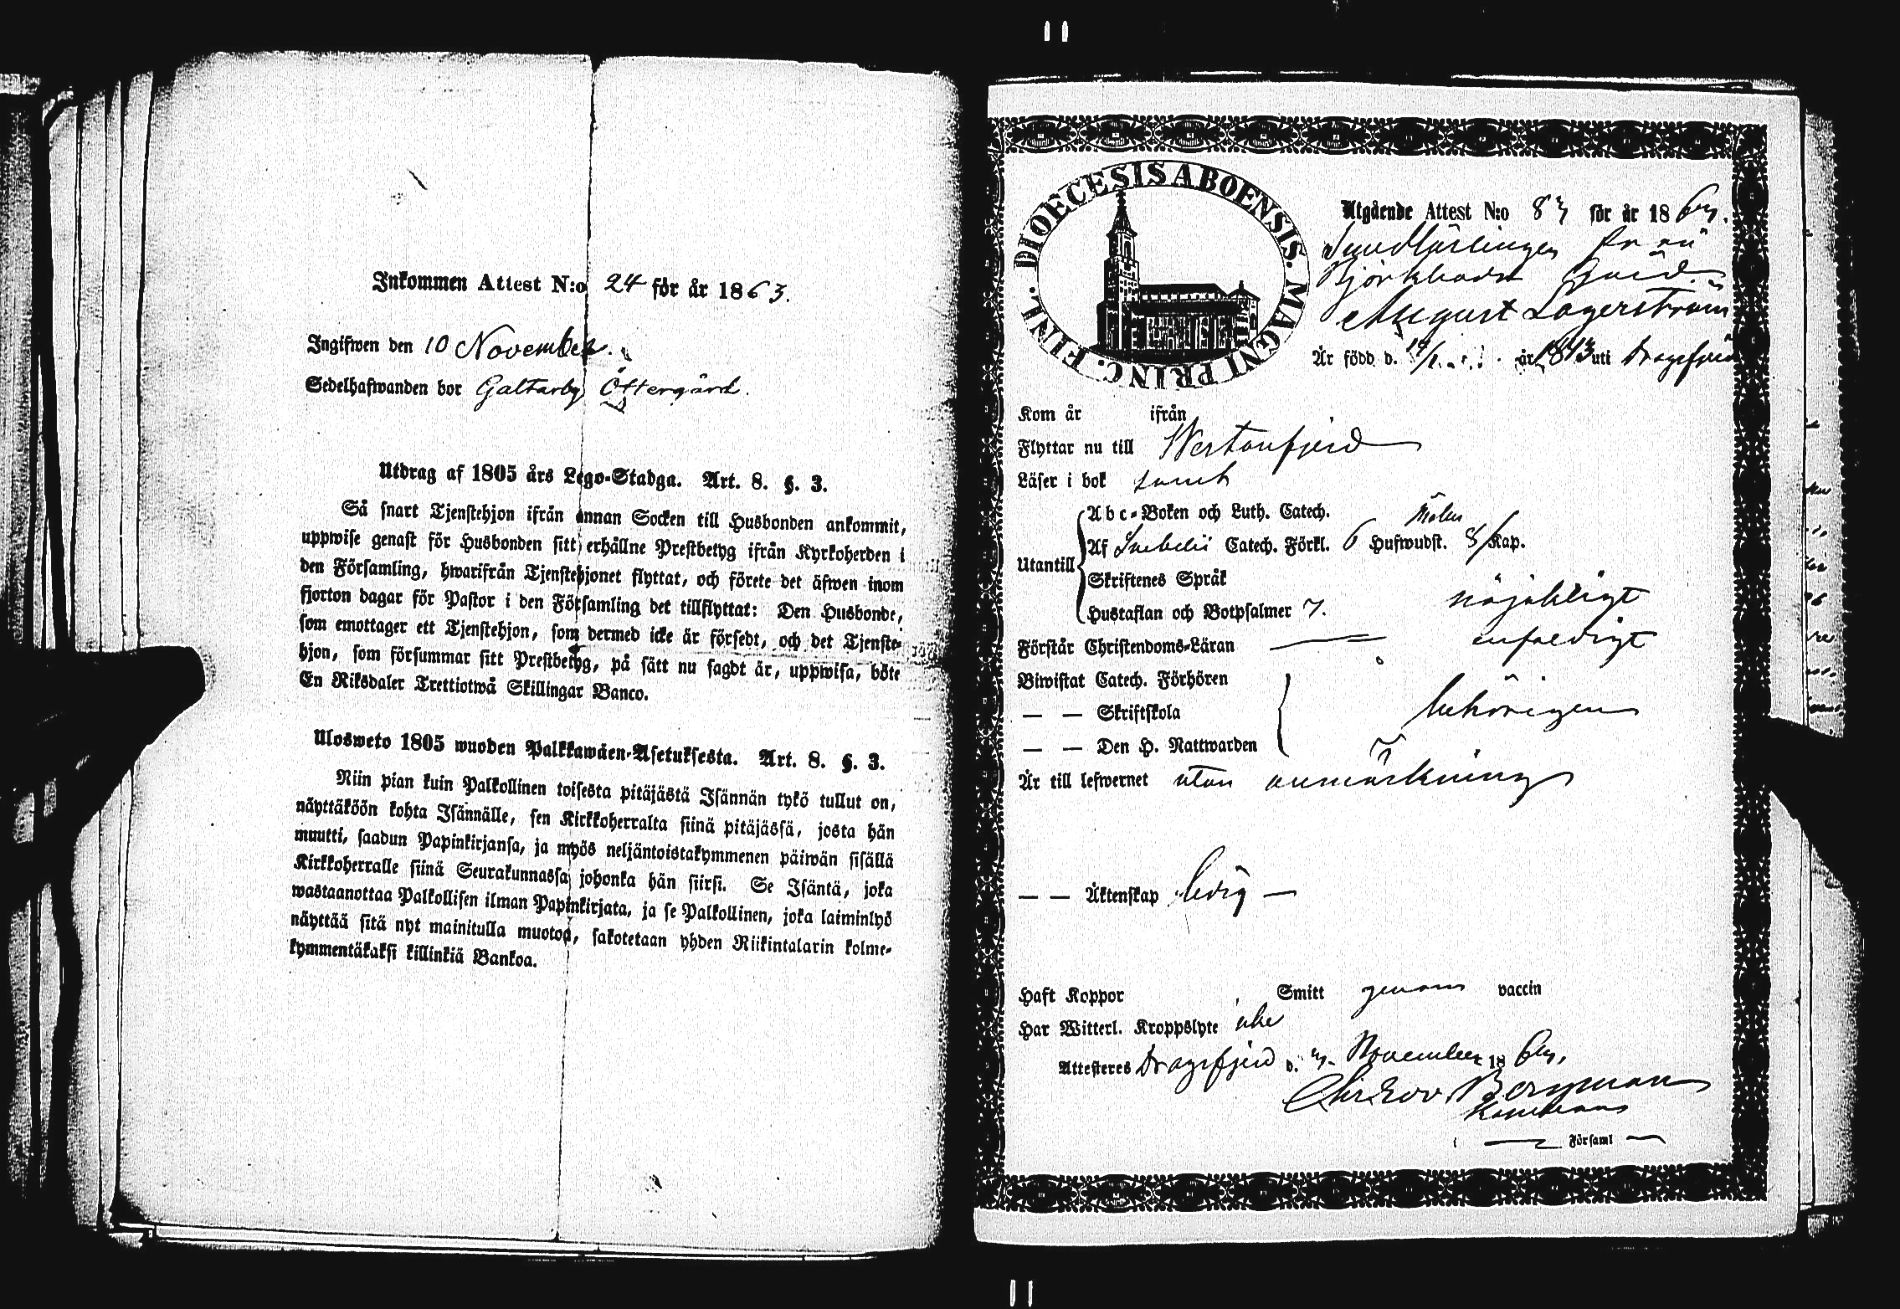 Inkommen Attest N:o 24 för år 1863.
Ingifwen den 10 November.
Sedelhafwanden bor Galtarby Östergård.
Utdrag af 1805 års Lego-Stadga. Art. 8. §. 3.
Så snart Tjenstehjon ifrån annan Socken till Husbonden ankommit,
uppwise genast för Husbonden sitt erhållne Prestbetyg ifrån Kyrkoherden i
den Församling, hwarifrån Tjenstehjonet flyttat, och förete det äfwen inom
fjorton dagar för Pastor i den Församling det tillflyttat: Den Husbonde,
som emottager ett Tjenstehjon, som dermed icke är försedt, och det Tjenste-
hjon, som försummar sitt Prestbetyg, på sätt nu sagdt är, uppwisa, böte
En Riksdaler Trettiotwå Skillingar Banco.
Ulosweto 1805 wuoden Palkkawäen-Asetuksesta. Art. 8. §. 3.
Niin pian kuin Palkollinen toisesta pitäjästä Isännän tykö tullut on,
näyttäköön kohta Isännälle, sen Kirkkoherralta siinä pitäjässä, josta hän
muutti, saadun Papinkirjansa, ja myös neljäntoistakymmenen päiwän sisällä
Kirkkoherralle siinä Seurakunnassa johonka hän siirsi. Se Isäntä, joka
wastaanottaa Palkollisen ilman Papinkirjata, ja se Palkollinen, joka laiminlyö
näyttää sitä nyt mainitulla muotoa, sakotetaan yhden Riikintalarin kolme-
kymmentäkaksi killinkiä Bankoa.
FINL. DIOECESIS ABOENSIS. MAGNI PRINC.
Utgående Attest N:o 83 för år 1863.
August Lagerström
Är född d. år 1843 uti Dragsfjerd
Kom år ifrån
Flyttar nu till Westanfjerd
Läser i bok samt
Utantill
Abc-Boken och Luth. Catech.
Af Svebelii Catech. Förkl. 6 Hufwudst. 8/ Kap.
Skriftenes Språk
Hustaflan och Botpsalmer 7. nöjaktligt
Förstår Christendoms-Läran enfaldigt
Biwistat Catech. Förhören
— — Skriftskola behörigen
— — Den H. Nattwarden
Är till lefwernet utan anmärkning
— — Äktenskap ledig —
Haft Koppor Smitt genom vaccin
Har Witterl. Kroppslyte icke
Attesteres Dragsfjerd d. 7. November 1863.
Bergman
Församl